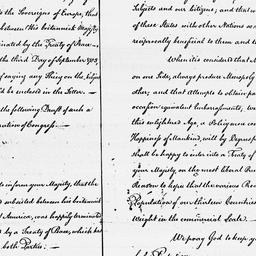 to the Sovereigns of Europe, that
between his britannick Majesty
terminated by the Treaty of Peace
the third Day of September 1783,
of saying any Thing on the Subject
be enclosed in the Letter.
the following Draft of such a
ration of Congress.
to inform your Majesty, that the
subsisted between his britannick
America, was happily terminated
by a Treaty of Peace, which has
both Parties:
Subjects and our Citizens, and that
of these States with other Nations
reciprocally beneficial to them and to
When it's considered that
on one Side, always produce Monopoly
other; and that Attempts to obtain
occasion equivalent Embarrassments,
this enlightened Age, a Policy
Happiness of Mankind, will by Degrees
shall be happy to enter into a Treaty of
your Majesty on the most liberal
Reason to hope that the various
Population of our thirteen Countries
Weight in the commercial Scale.
We pray God to keep you